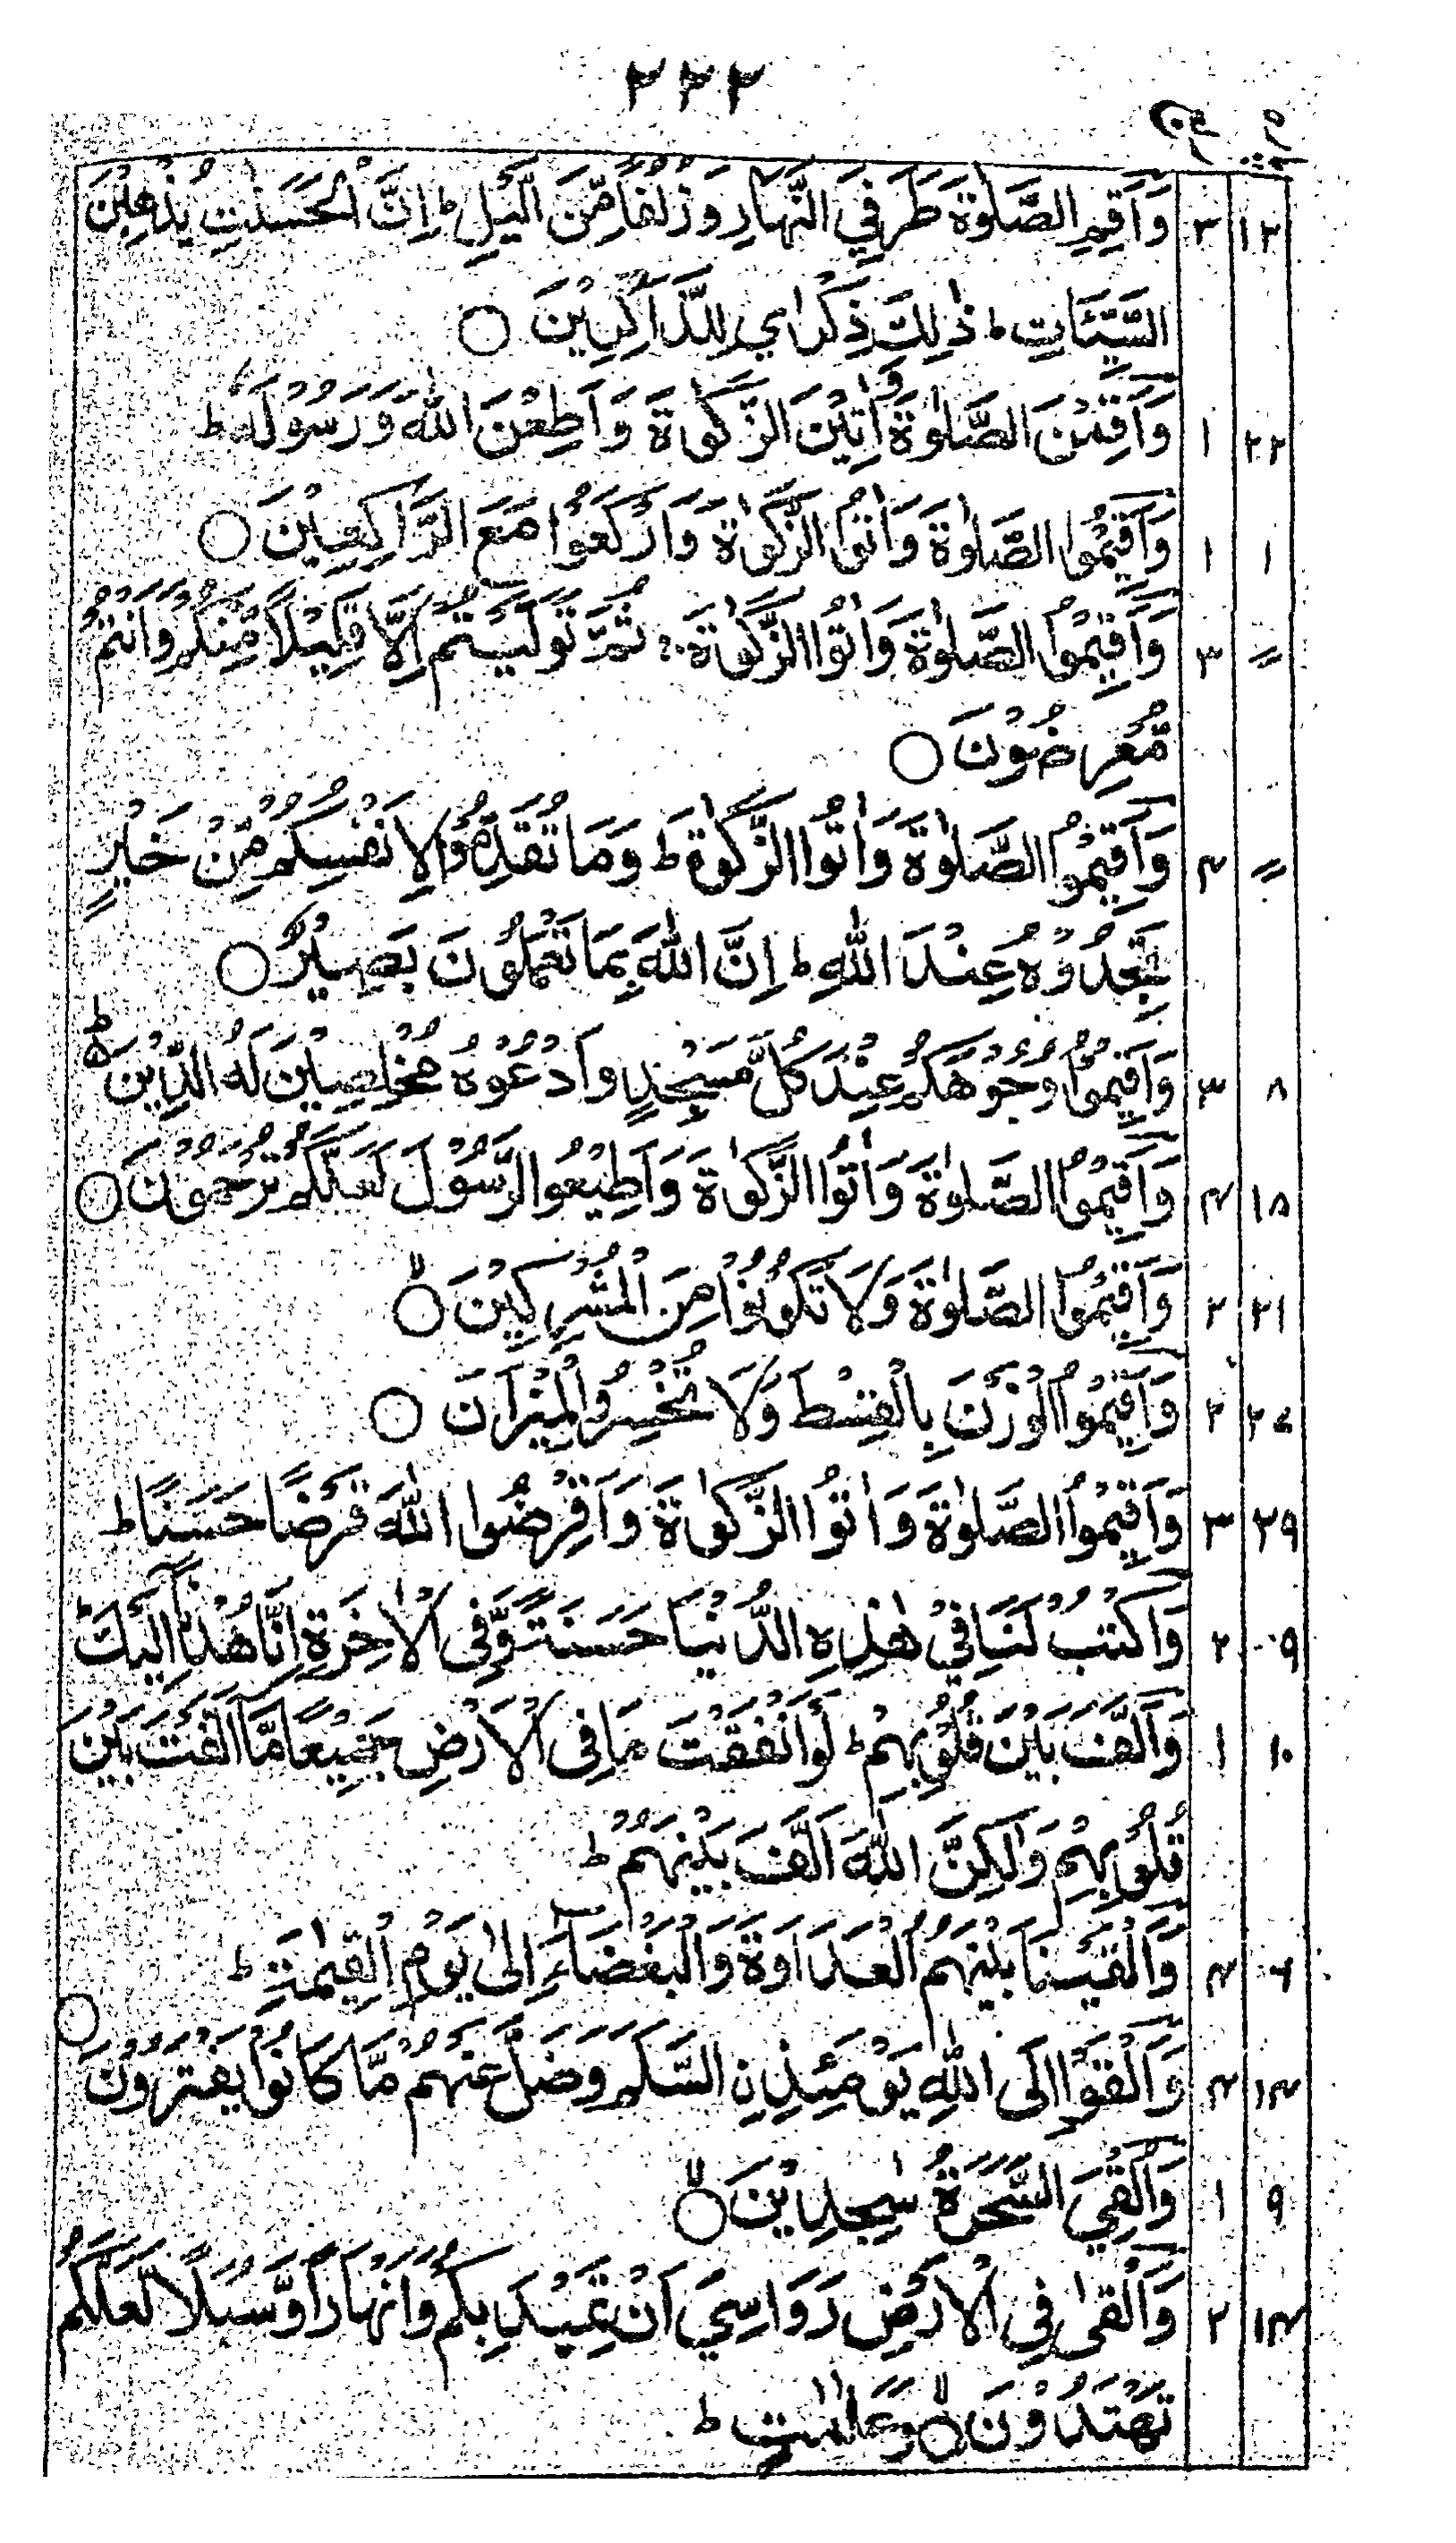 ۲۳۲
وَاَقِمِ الصَّلٰوةَ طَرَفَيِ النَّهَارِ وَزُلَفًا مِّنَ الَّيْلِ ط اِنَّ الْحَسَنٰتِ يُذْهِبْنَ ۳ ۱۲
السَّيِّئَاتِ ط ذٰلِكَ ذِكْرٰي لِلذَّاكِرِيْنَ ○
وَاَقِمْنَ الصَّلٰوةَ وَاٰتِيْنَ الزَّكٰوةَ وَاَطِعْنَ اللّٰهَ وَرَسُوْلَهٗ ط ۱ ۲۲
وَاَقِيْمُوا الصَّلٰوةَ وَاٰتُوا الزَّكٰوةَ وَارْكَعُوْا مَعَ الرَّاكِعِيْنَ ○ ۱ ۱
وَاَقِيْمُوا الصَّلٰوةَ وَاٰتُوا الزَّكٰوةَ ثُمَّ تَوَلَّيْتُمْ اِلَّا قَلِيْلًا مِّنْكُمْ وَاَنْتُمْ ۳ 〃
مُّعْرِضُوْنَ ○
وَاَقِيْمُوا الصَّلٰوةَ وَاٰتُوا الزَّكٰوةَ ط وَمَا تُقَدِّمُوْا لِاَنْفُسِكُمْ مِّنْ خَيْرٍ ۴ 〃
تَجِدُوْهُ عِنْدَ اللّٰهِ ط اِنَّ اللّٰهَ بِمَا تَعْمَلُوْنَ بَصِيْرٌ ○
وَاَقِيْمُوْا وُجُوْهَكُمْ عِنْدَ كُلِّ مَسْجِدٍ وَادْعُوْهُ مُخْلِصِيْنَ لَهُ الدِّيْنَ ط ۳ ۸
وَاَقِيْمُوا الصَّلٰوةَ وَاٰتُوا الزَّكٰوةَ وَاَطِيْعُوا الرَّسُوْلَ لَعَلَّكُمْ تُرْحَمُوْنَ ○ ۴ ۱۸
وَاَقِيْمُوا الصَّلٰوةَ وَلَا تَكُوْنُوْا مِنَ الْمُشْرِكِيْنَ ○ ۲ ۲۱
وَاَقِيْمُوا الْوَزْنَ بِالْقِسْطِ وَلَا تُخْسِرُوا الْمِيْزَانَ ○ ۲ ۲۷
وَاَقِيْمُوا الصَّلٰوةَ وَاٰتُوا الزَّكٰوةَ وَاَقْرِضُوا اللّٰهَ قَرْضًا حَسَنًا ط ۳ ۲۹
وَاكْتُبْ لَنَا فِيْ هٰذِهِ الدُّنْيَا حَسَنَةً وَّفِى الْاٰخِرَةِ اِنَّا هُدْنَا اِلَيْكَ ط ۲ ۹
وَاَلَّفَ بَيْنَ قُلُوْبِهِمْ ط لَوْ اَنْفَقْتَ مَا فِى الْاَرْضِ جَمِيْعًا مَّا اَلَّفْتَ بَيْنَ ۱ ۱۰
قُلُوْبِهِمْ وَلٰكِنَّ اللّٰهَ اَلَّفَ بَيْنَهُمْ ط
وَاَلْقَيْنَا بَيْنَهُمُ الْعَدَاوَةَ وَالْبَغْضَآءَ اِلٰى يَوْمِ الْقِيٰمَةِ ط ۴ ۶
وَاَلْقَوْا اِلَى اللّٰهِ يَوْمَئِذِنِ السَّلَمَ وَضَلَّ عَنْهُمْ مَّا كَانُوْا يَفْتَرُوْنَ ○ ۴ ۱۴
وَاُلْقِيَ السَّحَرَةُ سٰجِدِيْنَ ○ ۱ ۹
وَاَلْقٰى فِى الْاَرْضِ رَوَاسِيَ اَنْ تَمِيْدَ بِكُمْ وَاَنْهَارًا وَّسُبُلًا لَّعَلَّكُمْ ۲ ۱۴
تَهْتَدُوْنَ ○ وَعَلٰمٰتٍ ط